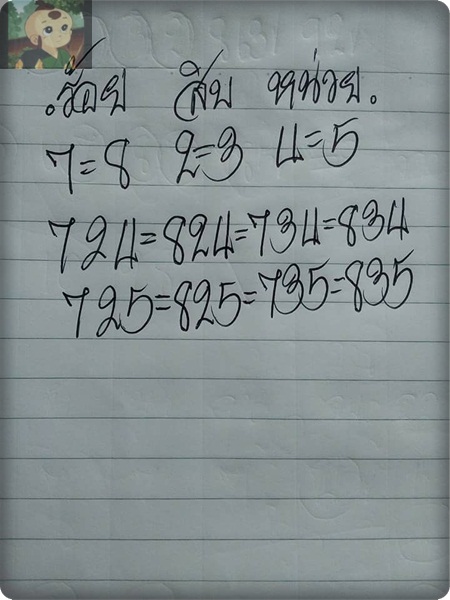 .ร้อย สิบ หน่วย.
7=8 2=3 4=5
724=824=734=834
725=825=735=835